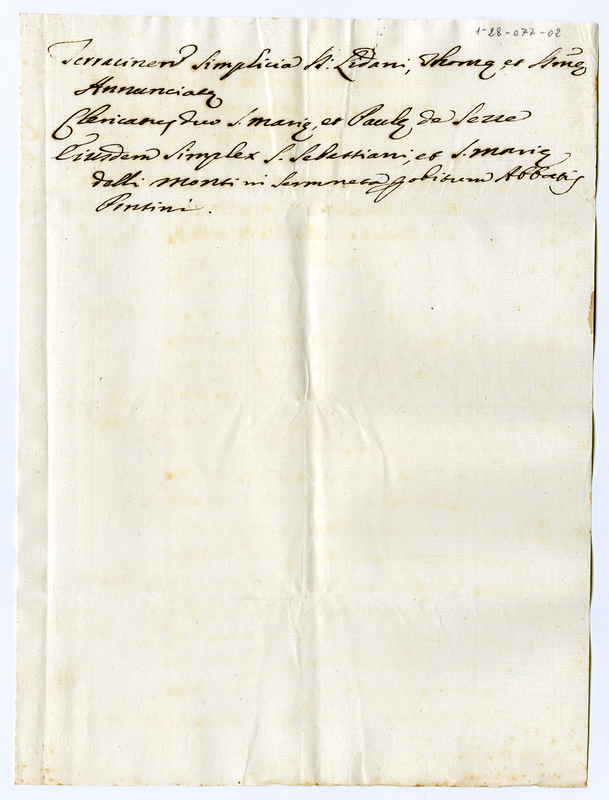 1-28-077-02
Terracinen Simplicia SS. Lidani, Thomę et Smę
Annunciatę
Clericatus duo S. Marię, et Paulę de Sesse
Eiusdem Simplex S. Sebastiani, et S. Marię
delli Monti in Sermneta obitum Abbatis
Pontini.